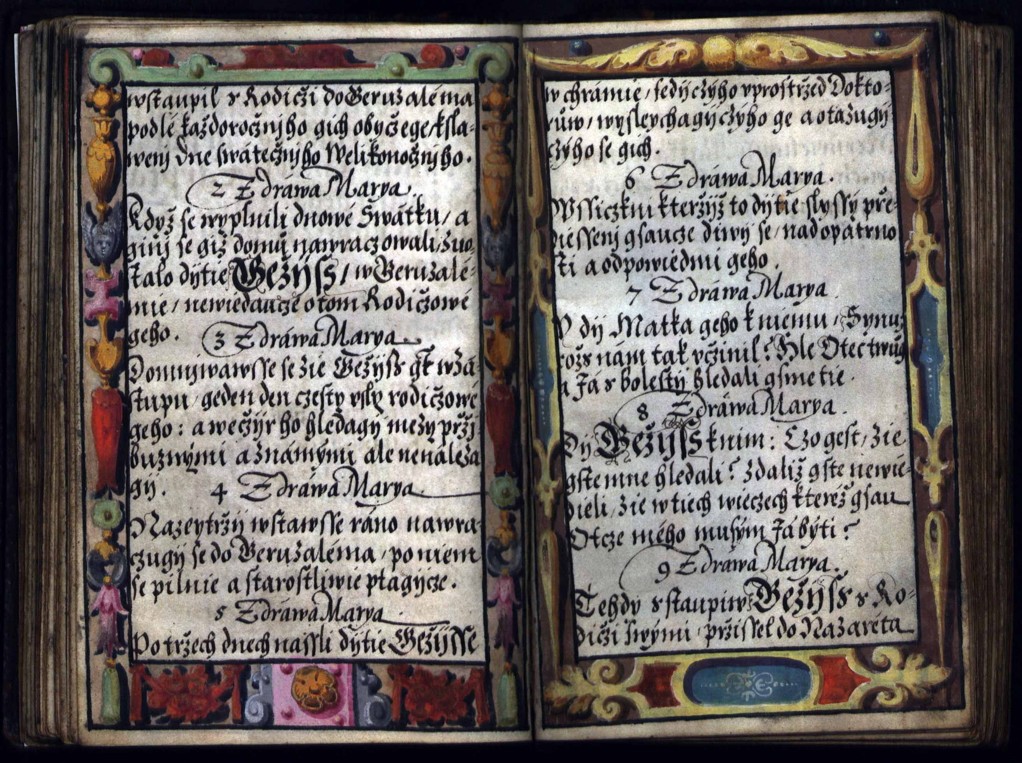 wstaupil s Rodiczi do Geruzaléma
podlé každorocznijho gich obyczege, k sla-
wený dne swáteczнijho Welikonocznijho.
2 Zdráwa Marya.
Když se wyplnili dnowé Swátku, a
giný se giž domů nawraczowali, zuo-
stalo dýtie Gežijss, w Geruzalé-
mie, newiedaucze o tom Rodiczowé
geho. 3 Zdráwa Marya.
Domnijwawsse se žie Gežijss gt w zá-
stupu, geden den czesty ussly rodiczowé
geho: a weczýr ho hledagy mezy přzij
buznými a známými ale nenaleza
gij. 4 Zdráwa Marya.
Nazeytřzij wstawsse ráno nawra-
czugij se do Geruzaléma, po niem
se pilnie a starostliwie ptagijcze.
5 Zdráwa Marya
Po tržech dnech nassli dýtie Gežijsse
w chrámie, sedijczýho vprostřzed Dokto-
růw, wysleychagijczýho ge a otázugij
czýho se gich.
6 Zdráwa Marya.
Wssiczkni kteržijž to dýtie slyssý pře-
diessenij gsaucze diwij se, nad opatrno
sti a odpowiedmi geho.
7 Zdráwa Marya.
Y dij Matka geho k niemu, Synu:
czož nám tak vczinil? Hle Otecz twůg
a Já s bolestij hledali gsme tie.
8 Zdráwa Marya.
Dij Gežijss k nim: Czo gest, žie
gste mne hledali? Zdaliž gste newie-
dieli, žie w tiech wieczech kteréž gsau
Otcze mého musým Já býti?
9 Zdráwa Marya.
Tehdy sstaupiw Gežijss s Ro-
diczi swými, přzissel do Nazareta